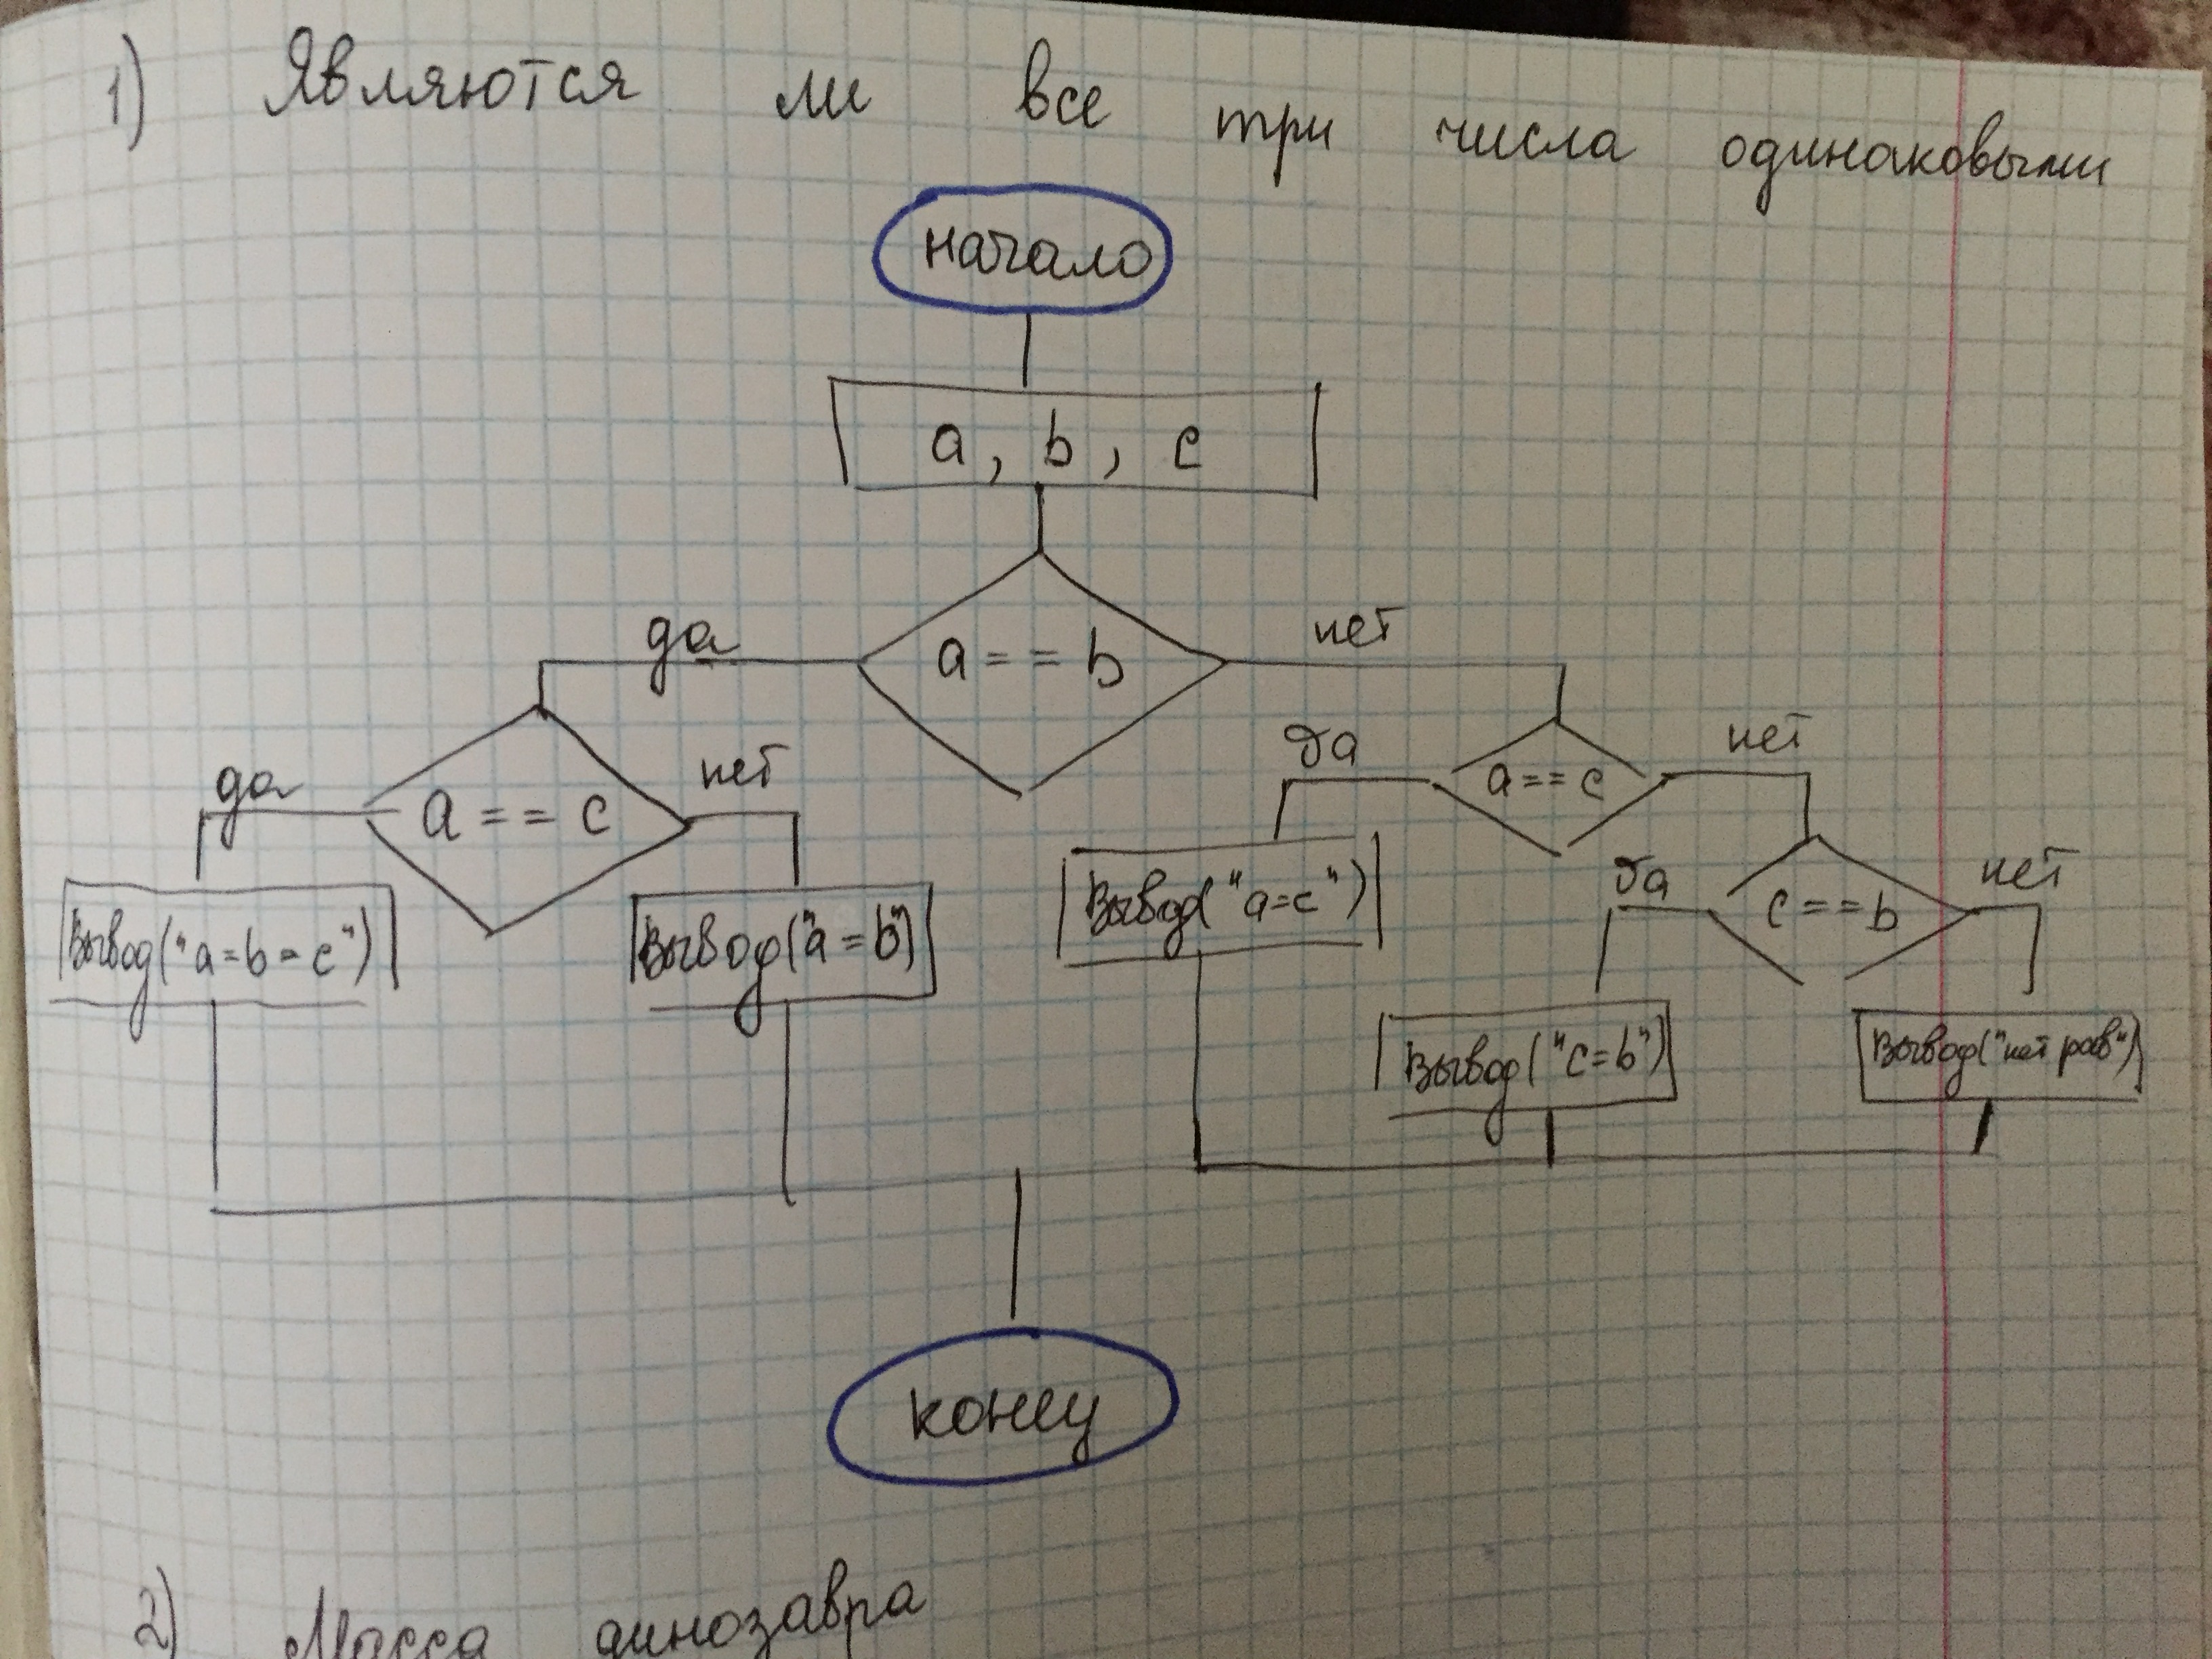 1) Являются ли все три числа одинаковыми
начало
a, b, c
да
a == b
нет
да
a == c
нет
да
a == c
нет
Вывод("a=b=c")
Вывод("a=b")
Вывод("a=c")
да
c == b
нет
Вывод("c=b")
Вывод("нет рав")
конец
2) Масса динозавра